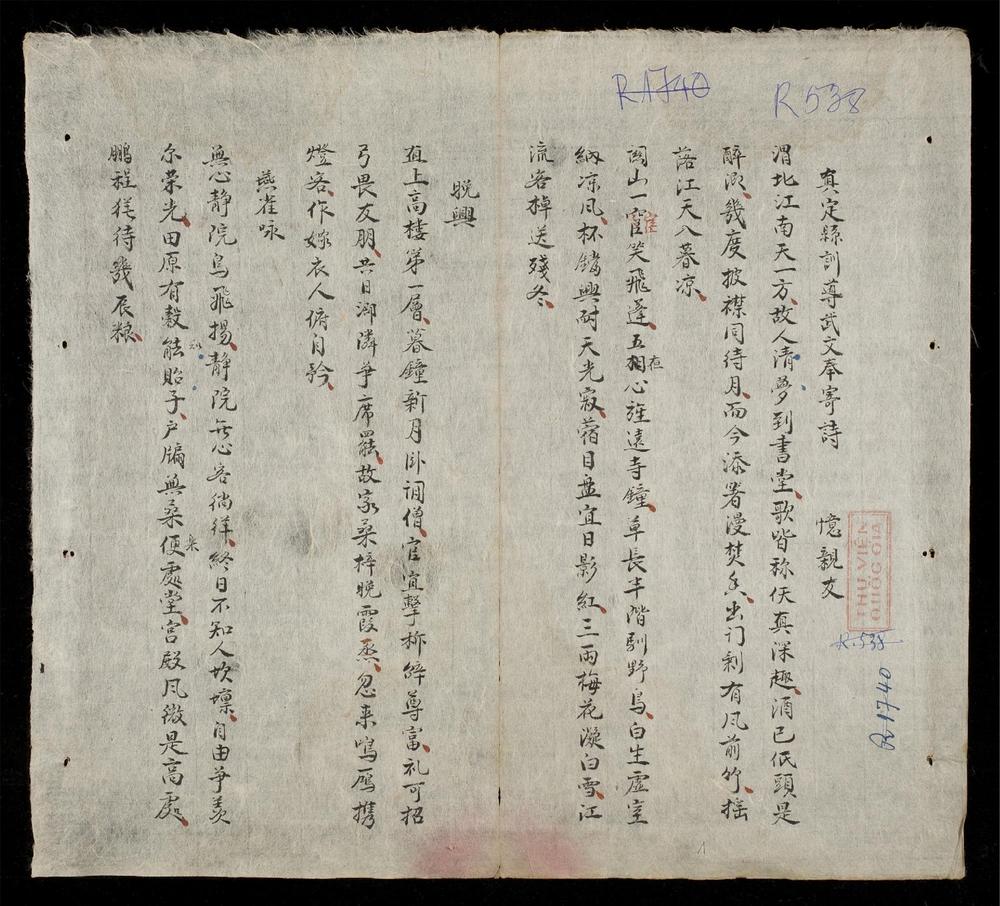 R1740
R 538
真定縣訓導武文奉寄詩 憶親友
渭北江南天一方故人清夢到書堂歌皆称仸真深趣酒已低頭是
醉㴱幾度披襟同待月而今添署漫焚香出门剩有风前竹摇
落江天入暮凉
関山一宦笑飛蓬五夜心旌遠寺鐘草長半階馴野鳥白生虚室
納凉风杯鐺興耐天光寂蓿目盘宜日影紅三両梅花凝白雪江
流客棹送残冬
晚興
直上高楼第一層暮鐘新月卧询僧官宜擊柝辞尊富礼可招
弓畏友朋共日鄉隣争席罷故家桑梓晚霞烝忽来鳴雁携
燈客作嫁衣人俯自矜
燕雀咏
無心静院鳥飛揚静院無心客徜徉終日不知人坎壈自由争羡
尔荣光田原有穀能貽子户牖無桑便處堂宫殿风微是高處
鵬程猶待幾辰粮
THƯ VIỆN
QUỐC GIA
R.538
R.1740
1